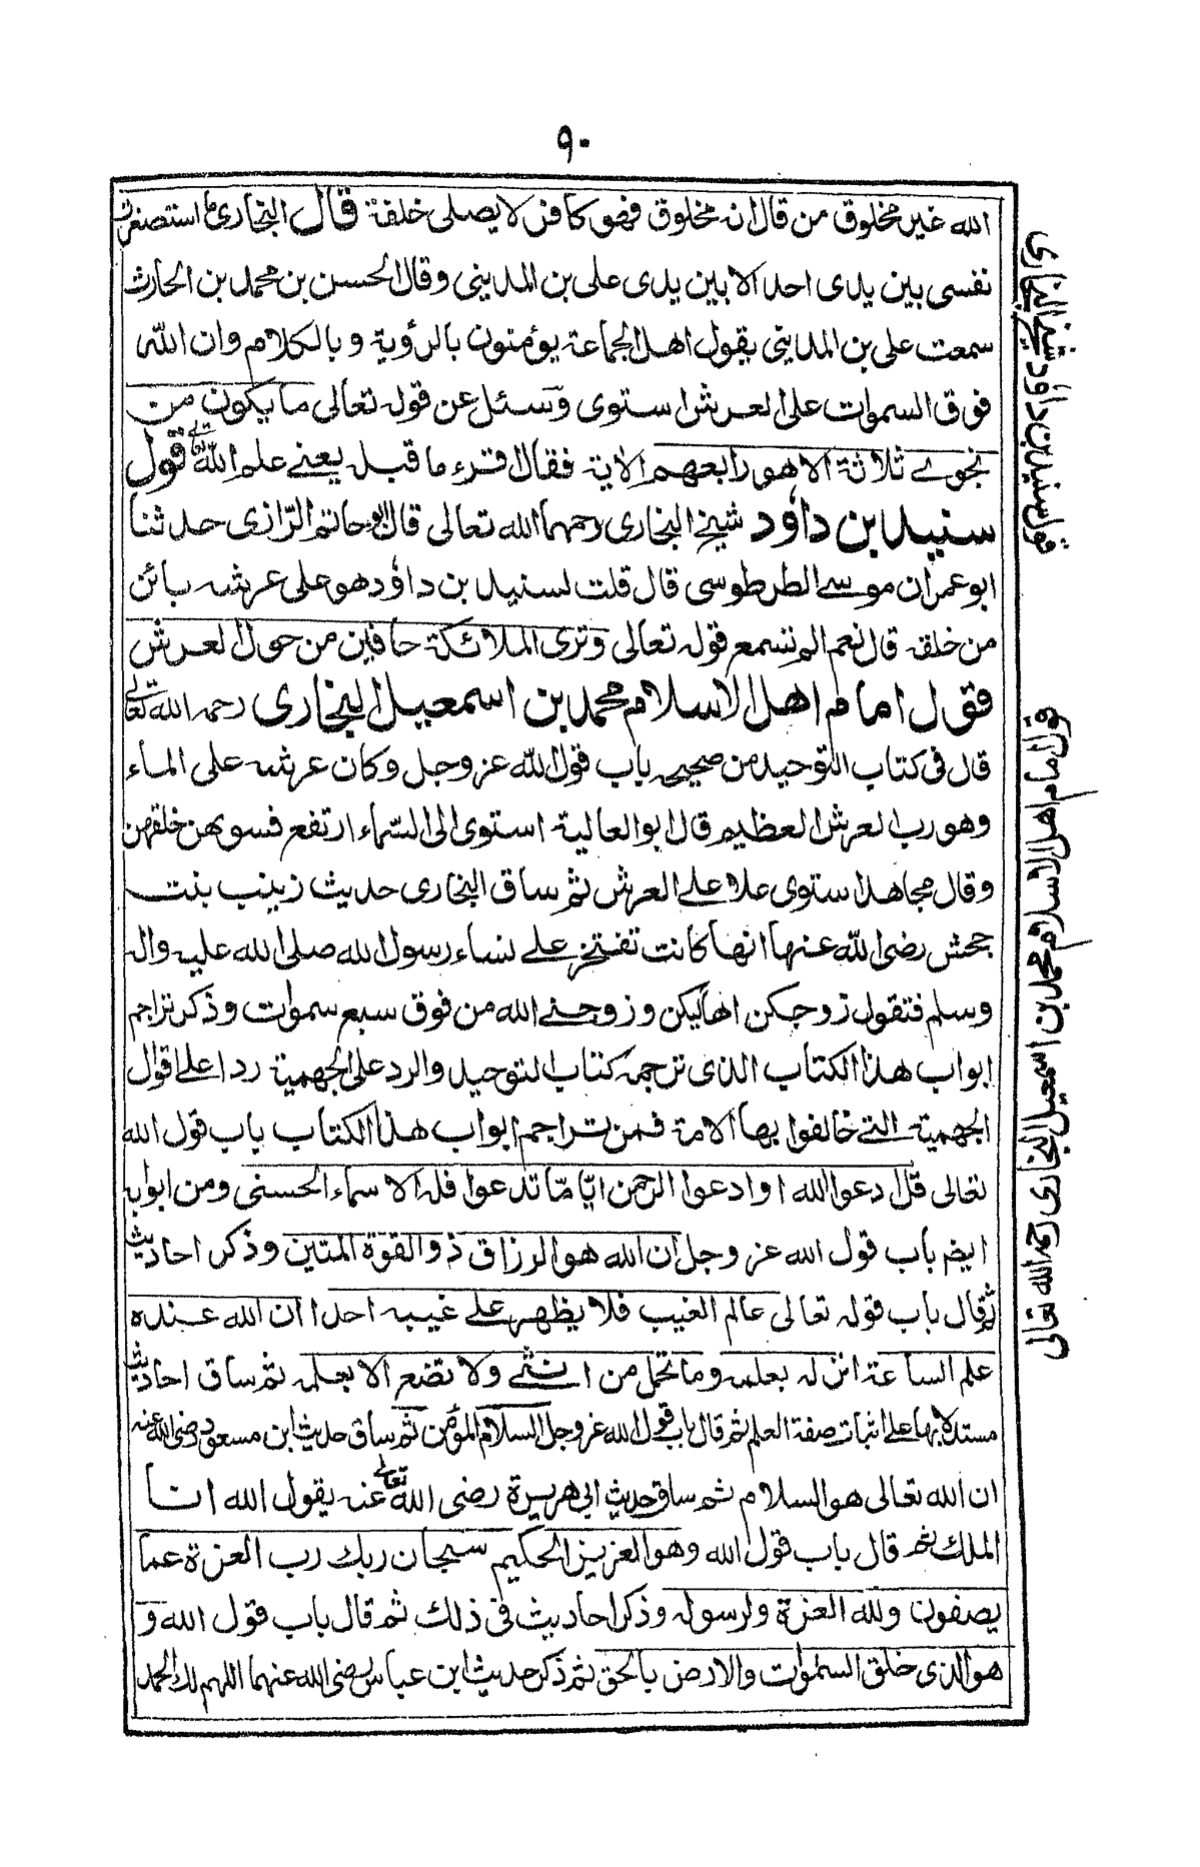 ٩٠
الله غير مخلوق من قال انه مخلوق فهو كافر لا يصلى خلفه قال البخارى ما استصغرت
نفسى بين يدى احد الا بين يدى على بن المدينى وقال الحسن بن محمد بن الحارث
سمعت على بن المدينى يقول اهل الجماعة يؤمنون بالرؤية وبالكلام وان الله
فوق السموات على العرش استوى وسئل عن قوله تعالى ما يكون من
نجوے ثلاثة الا هو رابعهم الاية فقال اقرء ما قبله يعنے علم الله تعالے قول
سنيد بن داؤد شيخ البخارى رحمهما الله تعالى قال ابو حاتم الرّازى حدثنا
ابو عمران موسے الطرطوسى قال قلت لسنيد بن داؤد هو على عرشه بائن
من خلقه قال نعم الم تسمع قوله تعالى وترى الملائكة حافين من حول العرش
قول امام اهل الاسلام محمد بن اسمعيل البخارى رحمه الله تعالے
قال فى كتاب التوحيد من صحيحه باب قول الله عز وجل وكان عرشه على الماء
وهو رب العرش العظيم قال ابو العالية استوى الى السّماء ارتفع فسوىهن خلقهن
وقال مجاهد استوى علا علے العرش ثم ساق البخارى حديث زينب بنت
جحش رضى الله عنها انها كانت تفتخر علے نساء رسول الله صلى الله عليه واله
وسلم فتقول زوجكن اهاليكن وزوجنے الله من فوق سبع سموات وذكر تراجم
ابواب هذا الكتاب الذى ترجمه كتاب التوحيد والرد على الجهمية ردا علے اقوال
الجهمية التے خالفوا بها الامة فمن تراجم ابواب هذا الكتاب باب قول الله
تعالى قل ادعوا الله او ادعوا الرحمن ايّا مّا تدعوا فله الاسماء الحسنى ومن ابوابه
ايضا باب قول الله عز وجل ان الله هو الرزاق ذو القوة المتين وذكر احاديث
ثم قال باب قوله تعالى عالم الغيب فلا يظهر علے غيبه احدا ان الله عنده
علم الساعة انزله بعلمه وما تحمل من انثے ولا تضع الا بعلمه ثم ساق احاديث
مستدلا بها على اثبات صفة العلم ثم قال باب قول الله عز وجل السلام المؤمن ثم ساق حديث ابن مسعود رضى الله عنه
ان الله تعالى هو السلام ثم ساق حديث ابى هريرة رضى الله تعالے عنه يقول الله انا
الملك ثم قال باب قول الله وهو العزيز الحكيم سبحان ربك رب العزة عما
يصفون ولله العزة ولرسوله وذكر احاديث فى ذلك ثم قال باب قول الله و
هو الذى خلق السموات والارض بالحق ثم ذكر حديث ابن عباس رضى الله عنهما اللهم لك الحمد
قول سنيد بن داؤد شيخ البخارى
قول امام اهل الاسلام محمد بن اسمعيل البخارى رحمه الله تعالى